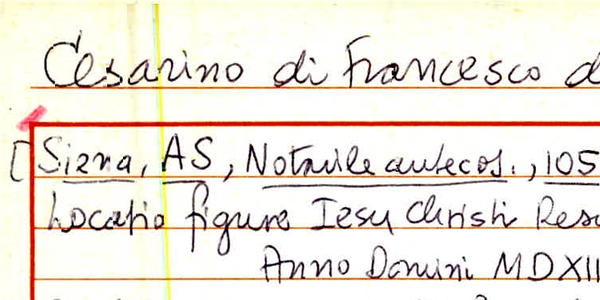 Cesarino di Francesco d
[Siena, AS, Notarile antecos., 105
Locatio figure Iesu Christi Resu
Anno Domini MDXII